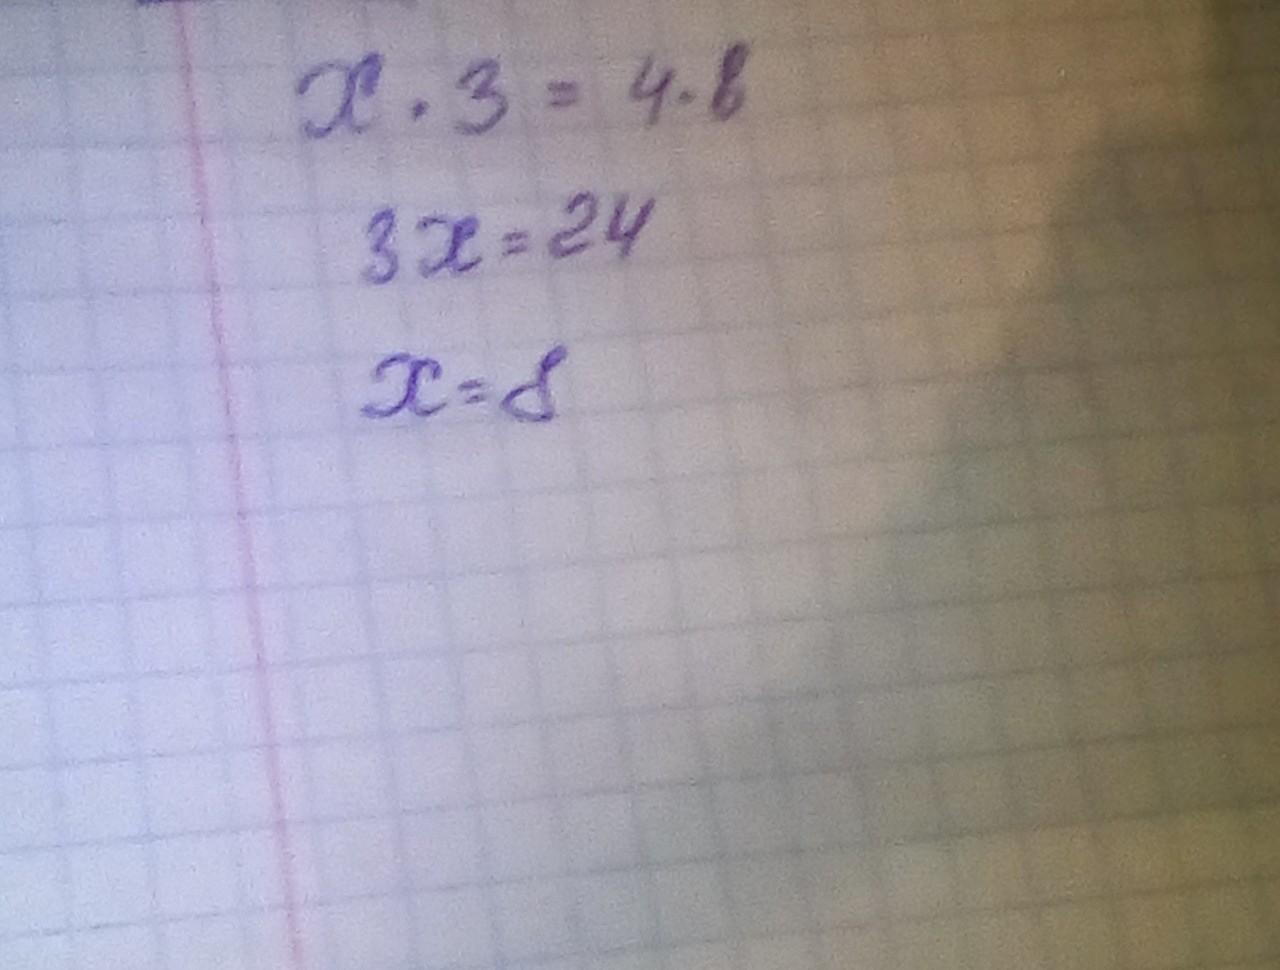 x · 3 = 4 · 6
3x = 24
x = 8